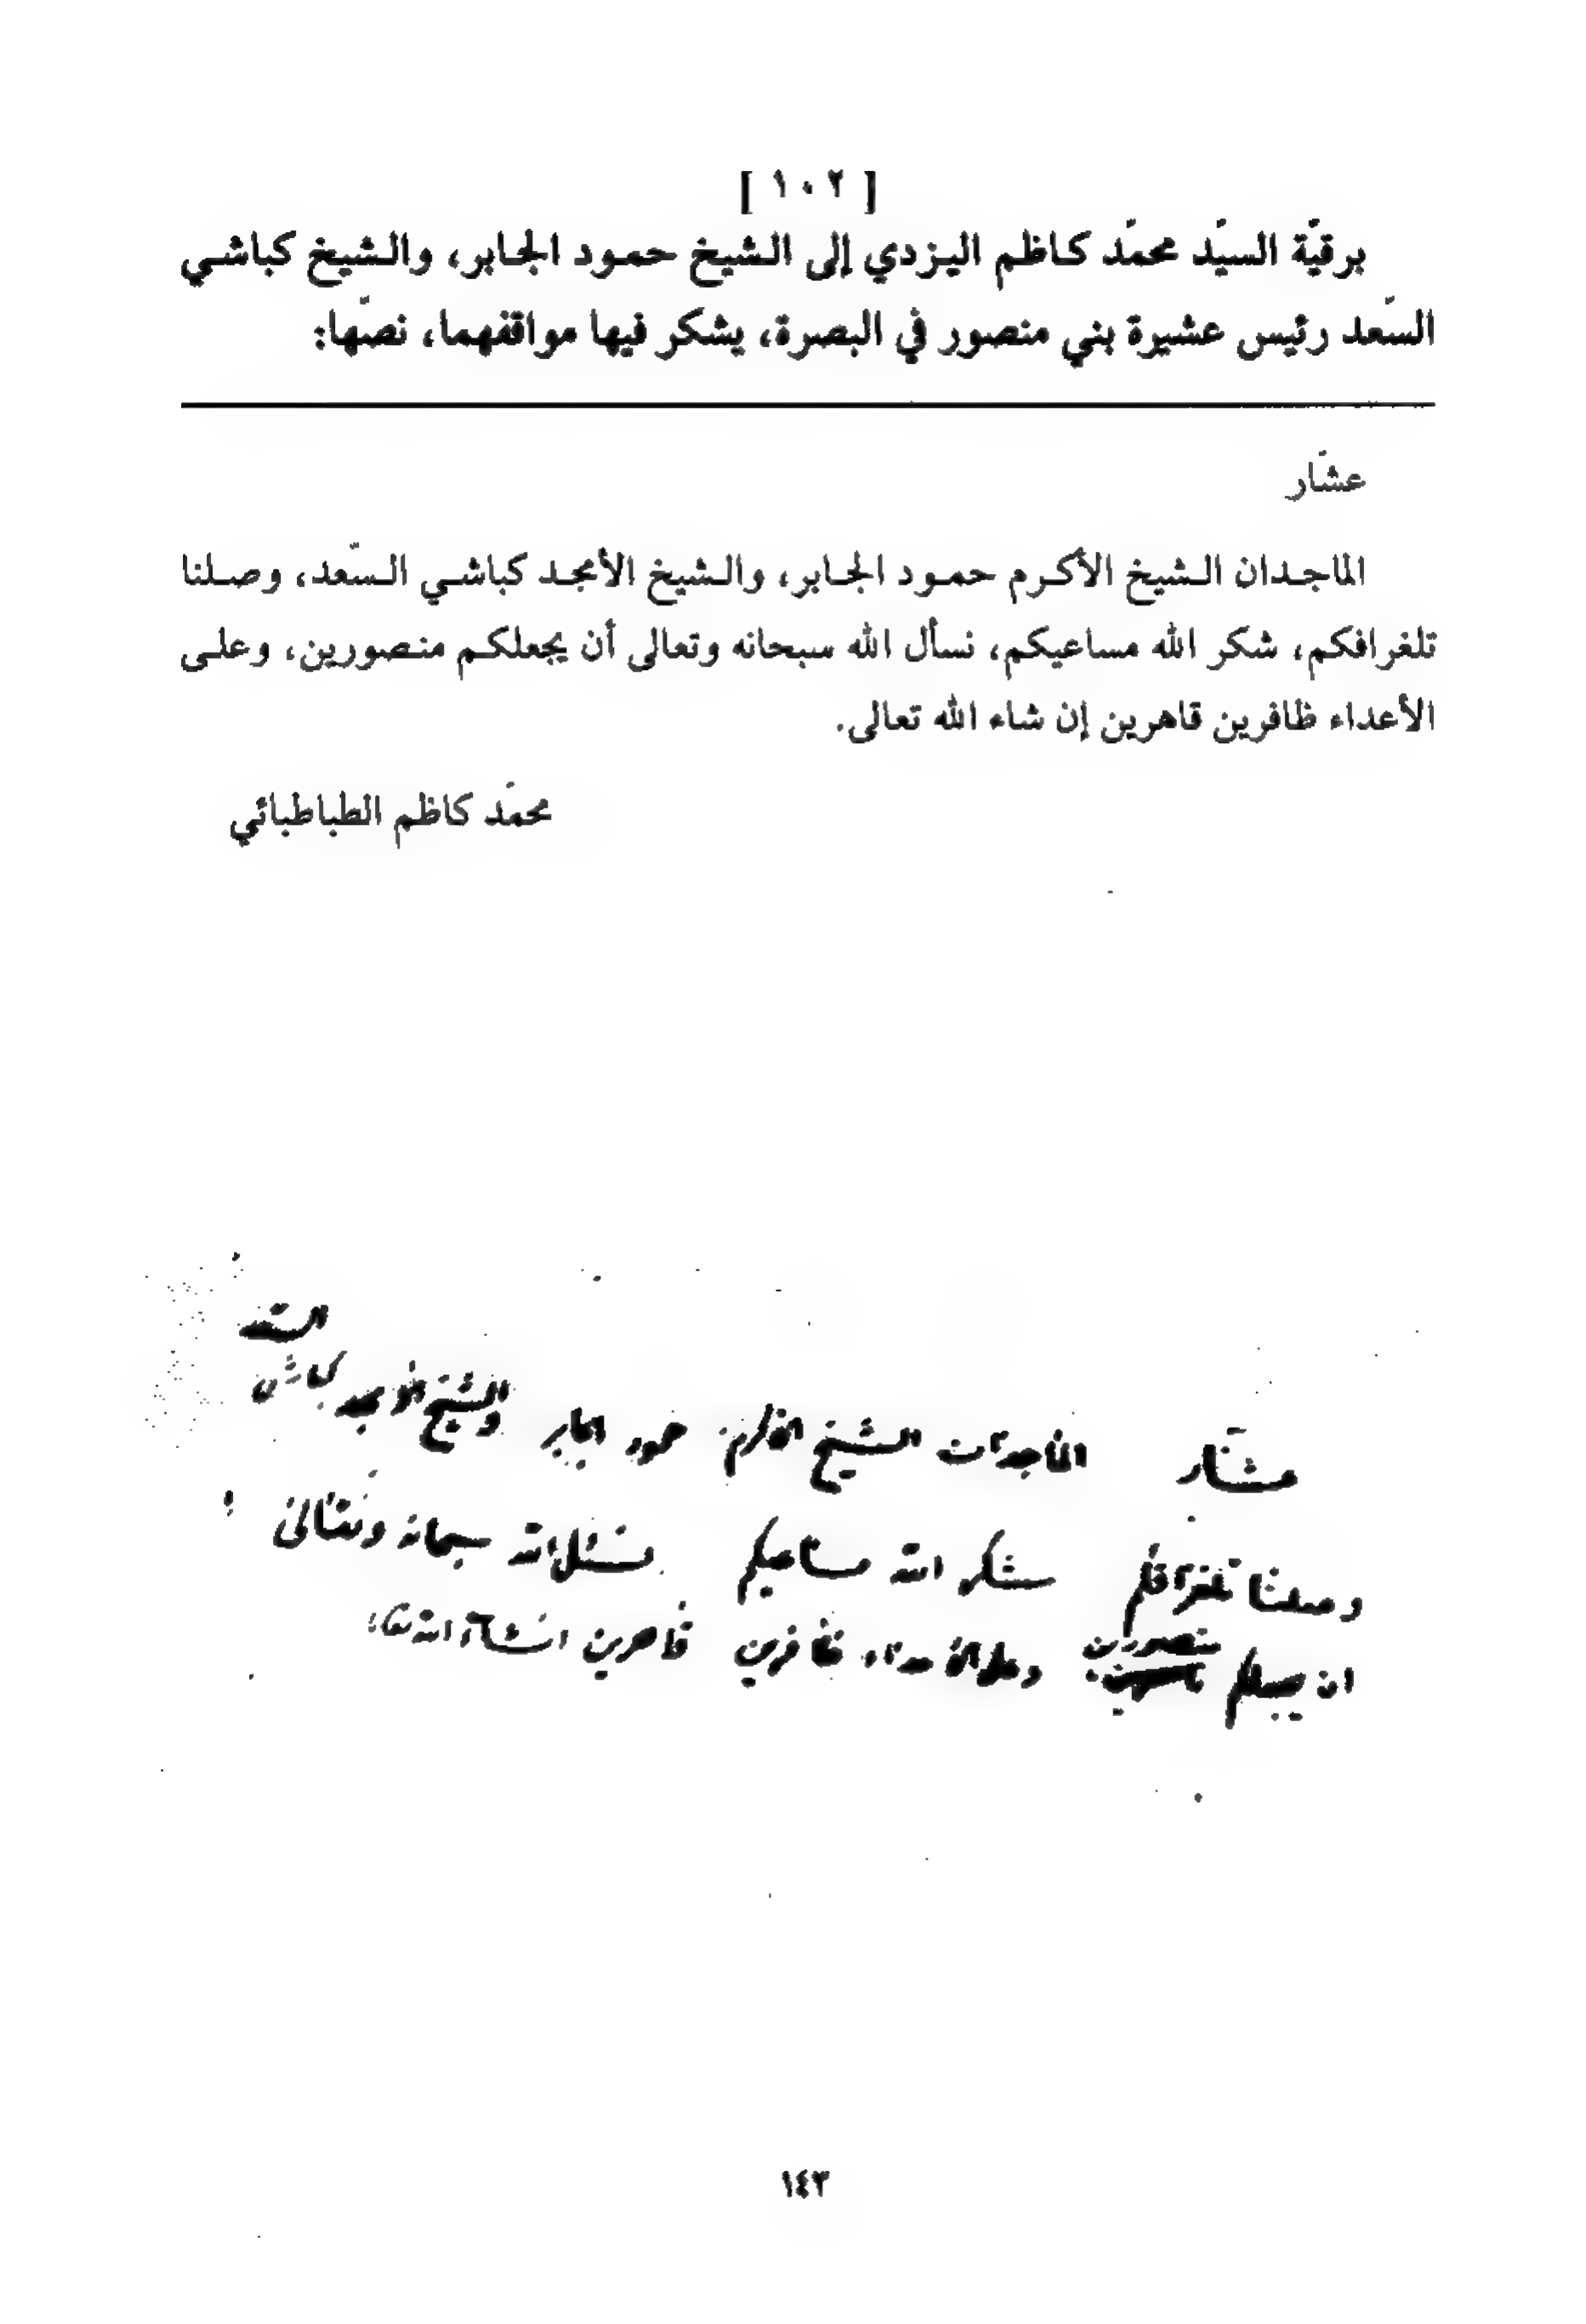 [ ١٠٢ ]
برقيّة السيّد محمّد كاظم اليزدي إلى الشيخ حمود الجابر، والشيخ كباشي
السّعد رئيس عشيرة بني منصور في البصرة، يشكر فيها مواقفهما، نصّها:
عشّار
الماجدان الشيخ الأكرم حمود الجابر، والشيخ الأمجد كباشي السّعد، وصلنا
تلغرافكم، شكر الله مساعيكم، نسأل الله سبحانه وتعالى أن يجعلكم منصورين، وعلى
الأعداء ظافرين قاهرين إن شاء الله تعالى.
محمّد كاظم الطباطبائي
السّعد
عشّار الماجدان الشيخ الاكرم حمود الجابر والشيخ الامجد كباشي
وصلنا تلغرافكم شكر الله مساعيكم نسئل الله سبحانه وتعالى
منصورين
ان يجعلكم وعلى الاعداء ظافرين قاهرين انشاء الله تعا
١٤٣